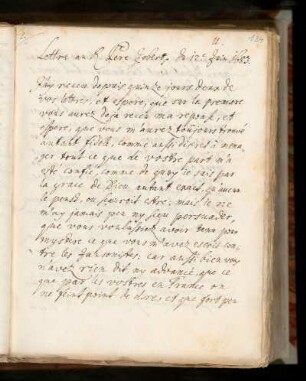 11
Lettre au R. Père Gobert, du 12e Juin 1683.
J'ay receu depuis quinze jours deux de
vos lettres, et espere, que sur la premiere
vous aurez deja receu ma reponse, et
espere, que vous m'aurez toujours trouvé
autant fidele, comme aussi discret à menager
tout ce que de vostre part m'a
esté confié, comme de quoy je sais par
la grace de Dieu autant
le pense, ou scauroit estre, mais je ne
m'ay jamais peu persuader,
que vous voulussiez avoir tenu pour
mystere ce que vous m'avez escrit contre
les Jansenistes, car aussi bien vous
n'avez rien dit ny advancé, que ce
que par les vostres en France on
ne feint point de dire, et que fort peu